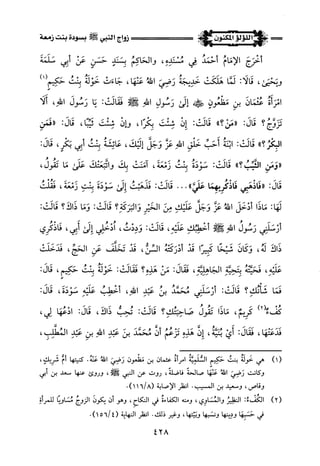 اللؤلؤ المكنون
زواج النبي ﷺ بسودة بنت زمعة
أَخْرَجَ الإِمَامُ أَحْمَدُ فِي مُسْنَدِهِ، والحَاكِمُ بِسَنَدٍ حَسَنٍ عَنْ أَبِي سَلَمَةَ
ويَحْيَى، قَالَا: لَمَّا هَلَكَتْ خَدِيجَةُ رَضِيَ اللهُ عَنْهَا، جَاءَتْ خَوْلَةُ بِنْتُ حَكِيمٍ(١)
امْرَأَةُ عُثْمَانَ بنِ مَظْعُونٍ ﷺ إِلَى رَسُولِ اللهِ ﷺ فَقَالَتْ: يَا رَسُولَ اللهِ، أَلَا
تَزَوَّجُ؟ قَالَ: «مَنْ؟» قَالَتْ: إِنْ شِئْتَ بِكْرًا، وإِنْ شِئْتَ ثَيِّبًا، قَالَ: «فَمَنِ
البِكْرُ؟» قَالَتْ: ابْنَةُ أَحَبِّ خَلْقِ اللهِ عَزَّ وَجَلَّ إِلَيْكَ، عَائِشَةُ بِنْتُ أَبِي بَكْرٍ، قَالَ:
«وَمَنِ الثَّيِّبُ؟» قَالَتْ: سَوْدَةُ بِنْتُ زَمْعَةَ، آمَنَتْ بِكَ واتَّبَعَتْكَ عَلَى مَا تَقُولُ،
قَالَ: «فَاذْهَبِي فَاذْكُرِيهِمَا عَلَيَّ»... قَالَتْ: فَذَهَبْتُ إِلَى سَوْدَةَ بِنْتِ زَمْعَةَ، فَقُلْتُ
لَهَا: مَاذَا أَدْخَلَ اللهُ عَزَّ وَجَلَّ عَلَيْكِ مِنَ الخَيْرِ والبَرَكَةِ؟ قَالَتْ: وَمَا ذَاكَ؟ قَالَتْ:
أَرْسَلَنِي رَسُولُ اللهِ ﷺ أَخْطُبُكِ عَلَيْهِ، قَالَتْ: وَدِدْتُ، أُدْخُلِي إِلَى أَبِي، فَاذْكُرِي
ذَاكَ لَهُ، وَكَانَ شَيْخًا كَبِيرًا قَدْ أَدْرَكَتْهُ السِّنُّ، قَدْ تَخَلَّفَ عَنِ الحَجِّ، فَدَخَلَتْ
عَلَيْهِ، فَحَيَّتْهُ بِتَحِيَّةِ الجَاهِلِيَّةِ، فَقَالَ: مَنْ هَذِهِ؟ فَقَالَتْ: خَوْلَةُ بِنْتُ حَكِيمٍ، قَالَ:
فَمَا شَأْنُكِ؟ قَالَتْ: أَرْسَلَنِي مُحَمَّدُ بنُ عَبْدِ اللهِ، أَخْطُبُ عَلَيْهِ سَوْدَةَ، قَالَ:
كُفْءٌ(٢) كَرِيمٌ، مَاذَا تَقُولُ صَاحِبَتُكِ؟ قَالَتْ: تُحِبُّ ذَاكَ، قَالَ: ادْعُهَا لِي،
فَدَعَتْهَا، فَقَالَ: أَيْ بُنَيَّةُ، إِنَّ هَذِهِ تَزْعُمُ أَنَّ مُحَمَّدَ بنَ عَبْدِ اللهِ بنِ عَبْدِ المُطَّلِبِ،
(١) هي خَولَةُ بنت حَكِيمٍ السُّلَمِيَّةُ امرأةُ عثمان بن مَظْعون رَضِيَ اللهُ عَنْهُ. كنيتها أمُّ شَرِيكٍ،
وكانت رَضِيَ اللهُ عَنْهَا صالحةً فاضلةً، روت عن النبي ﷺ، وروى عنها سعد بن أبي
وقاص، وسعيد بن المسيب. انظر الإصابة (١١٦/٨).
(٢) الكُفْءُ: النظيرُ والمُسَاوِي، ومنه الكفاءةُ في النكاح، وهو أن يكونَ الزوجُ مُسَاويًا للمرأةِ
في حَسَبِهَا ودِينِها ونَسَبِها وبَيْتِها، وغير ذلك. انظر النهاية (١٥٦/٤).
٤٢٨